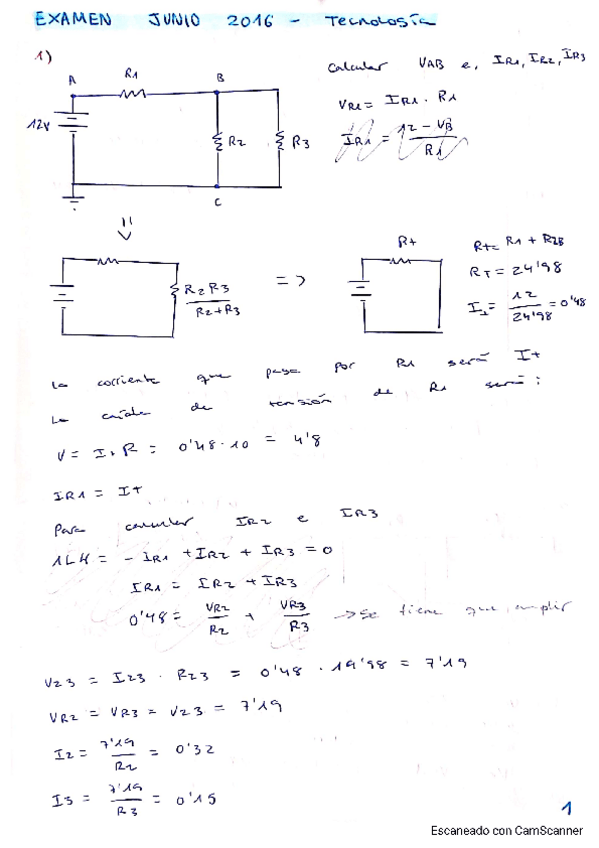 EXAMEN JUNIO 2016 - Tecnología
1)
A R1 B
Calcular VAB e, IR1, IR2, IR3
12V
R2 R3
C
VR1 = IR1 · R1
IR1 = 12 - VB / R1
=
R2 R3 / R2+R3
=>
Rt
Rt= R1 + R2B
RT = 24'98
I1 = 12 / 24'98 = 0'48
La corriente que pasa por R1 será It
La caída de tensión de R1 será:
V = I. R = 0'48·10 = 4'8
IR1 = It
Para calcular IR2 e IR3
1LK = - IR1 + IR2 + IR3 = 0
IR1 = IR2 + IR3
0'48 = VR2 / R2 + VR3 / R3 -> Se tiene que cumplir
V23 = I23 · R23 = 0'48 · 19'98 = 7'19
VR2 = VR3 = V23 = 7'19
I2 = 7'19 / R2 = 0'32
I3 = 7'19 / R3 = 0'15
1
Escaneado con CamScanner